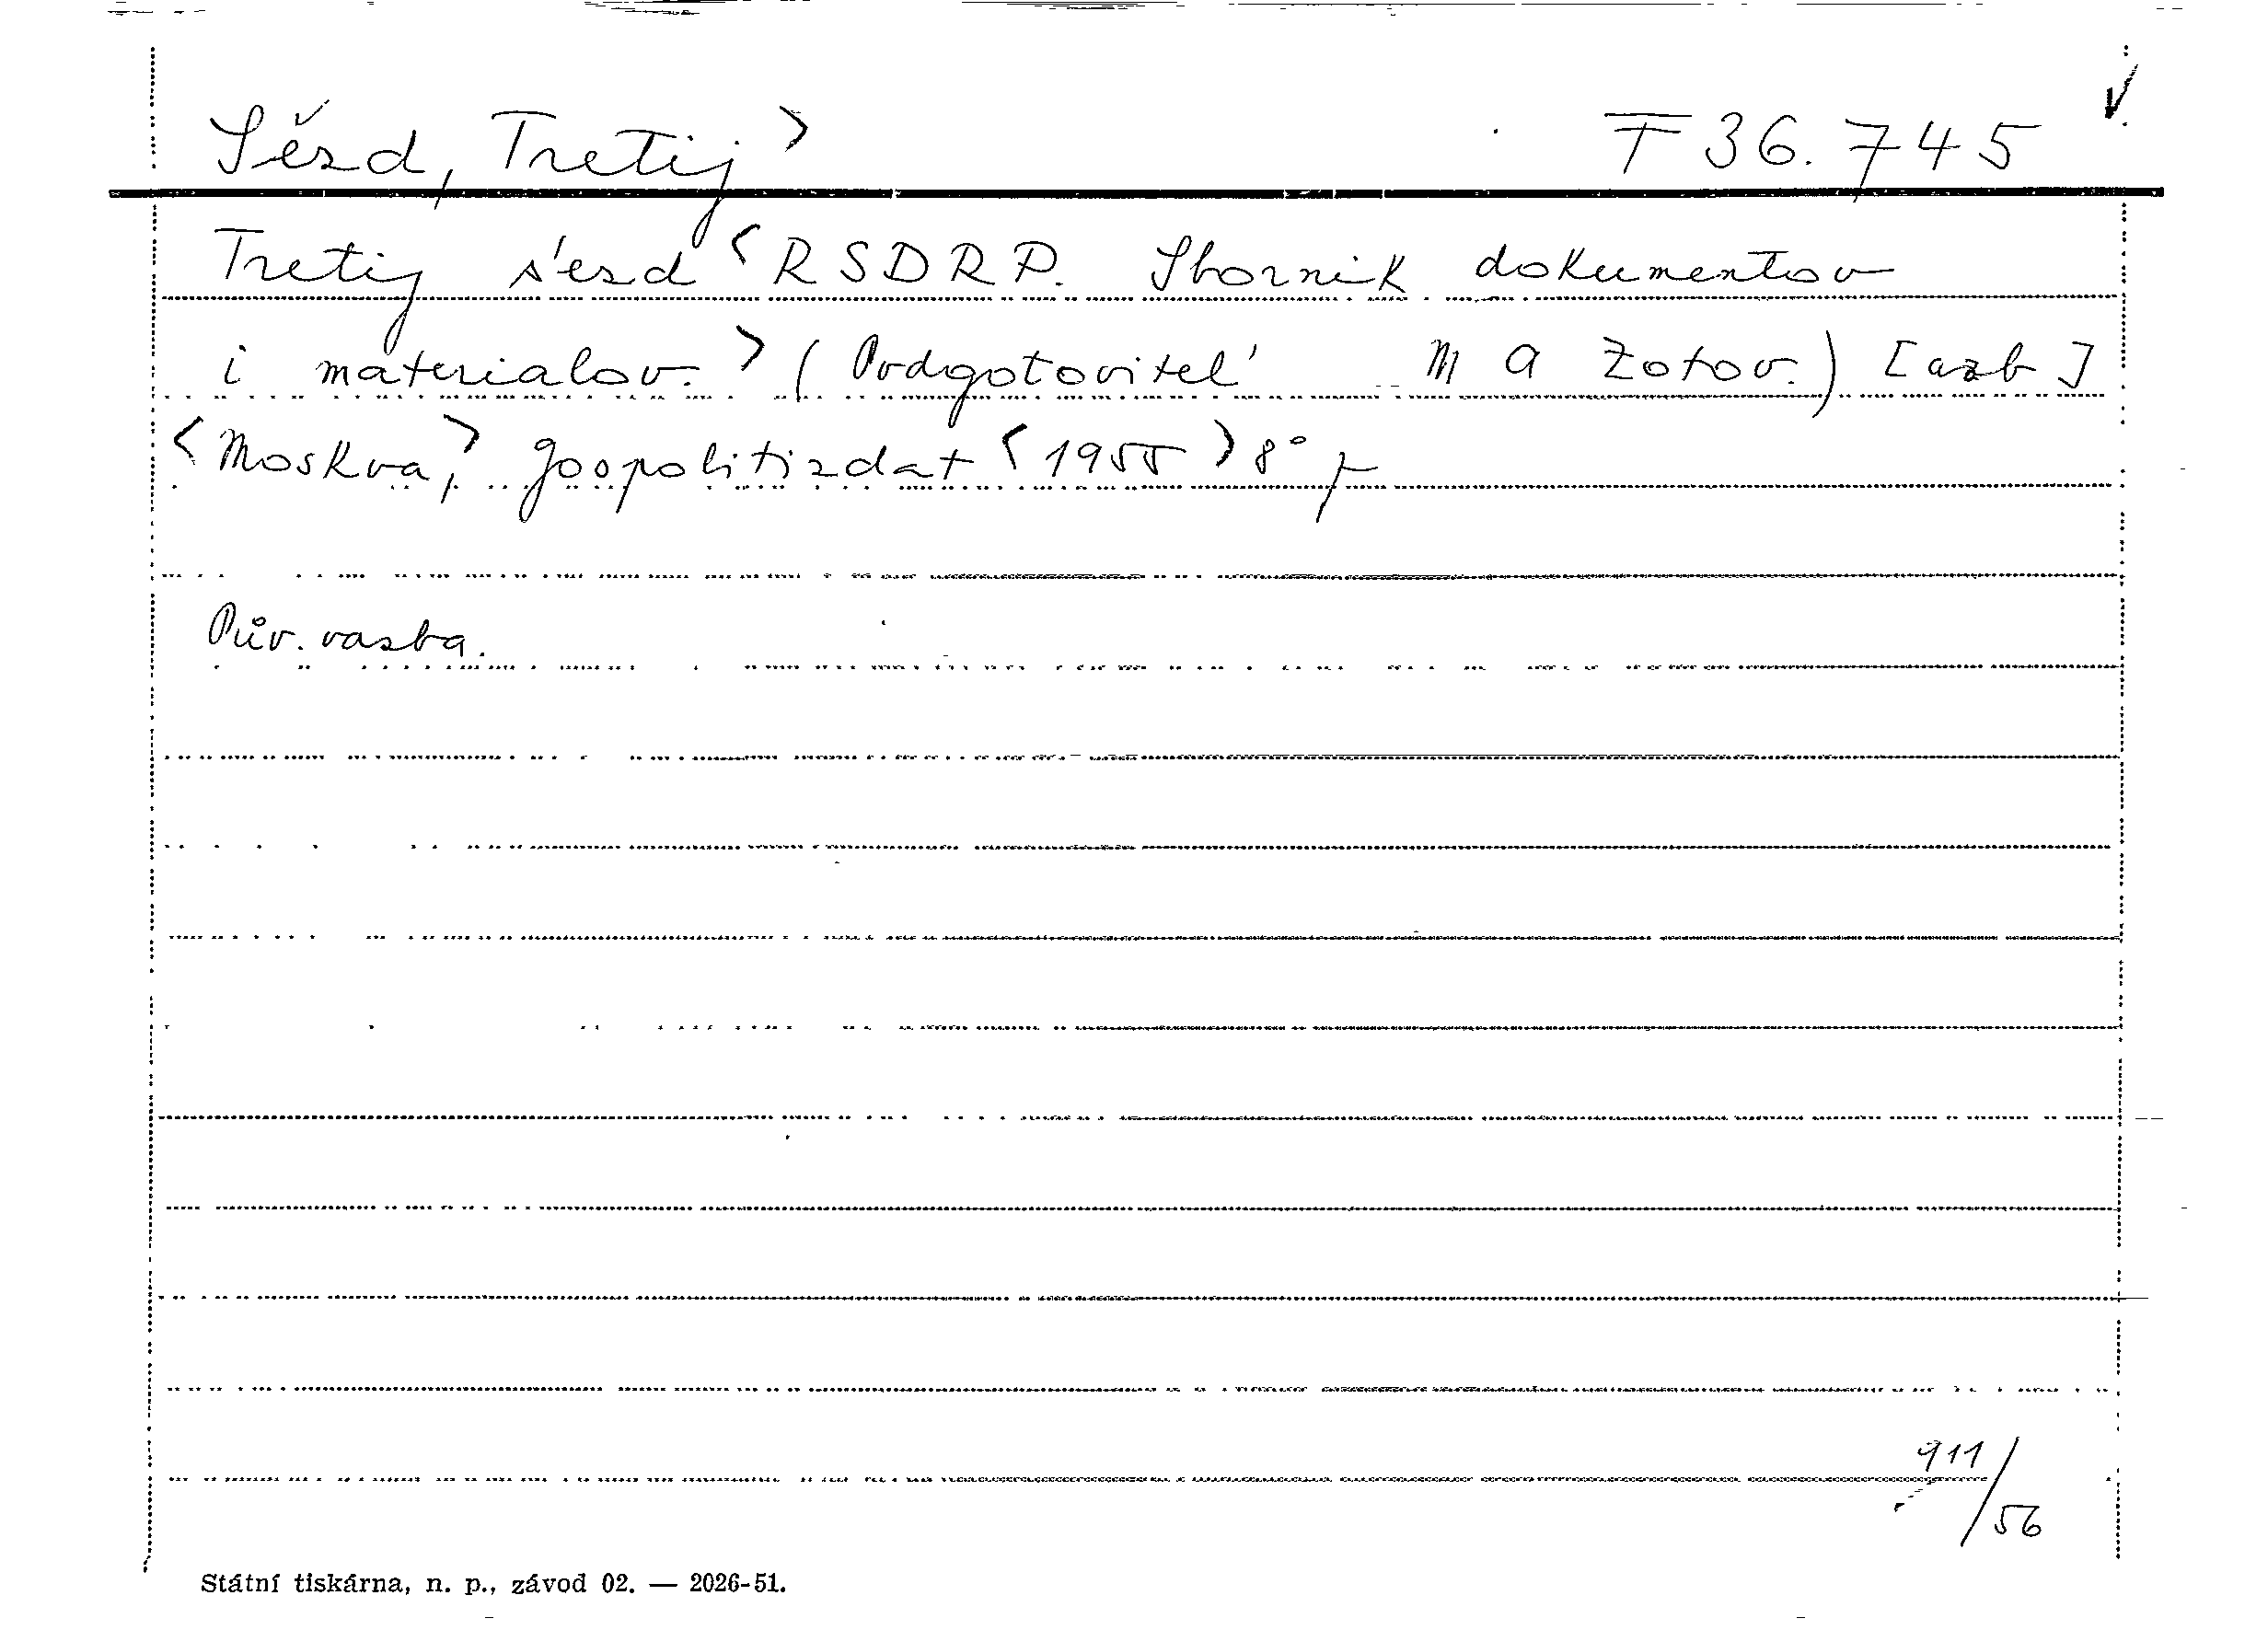 Sězd, Tretij > F 36.745
Tretij s'ezd < RSDRP. Sbornik dokumentov
i materialov. > (Podgotovitel' M A Zotov.) [azb]
< Moskva, > Gospolitizdat < 1955 > 8°
Pův. vazba.
911/56
Státní tiskárna, n. p., závod 02. — 2026-51.